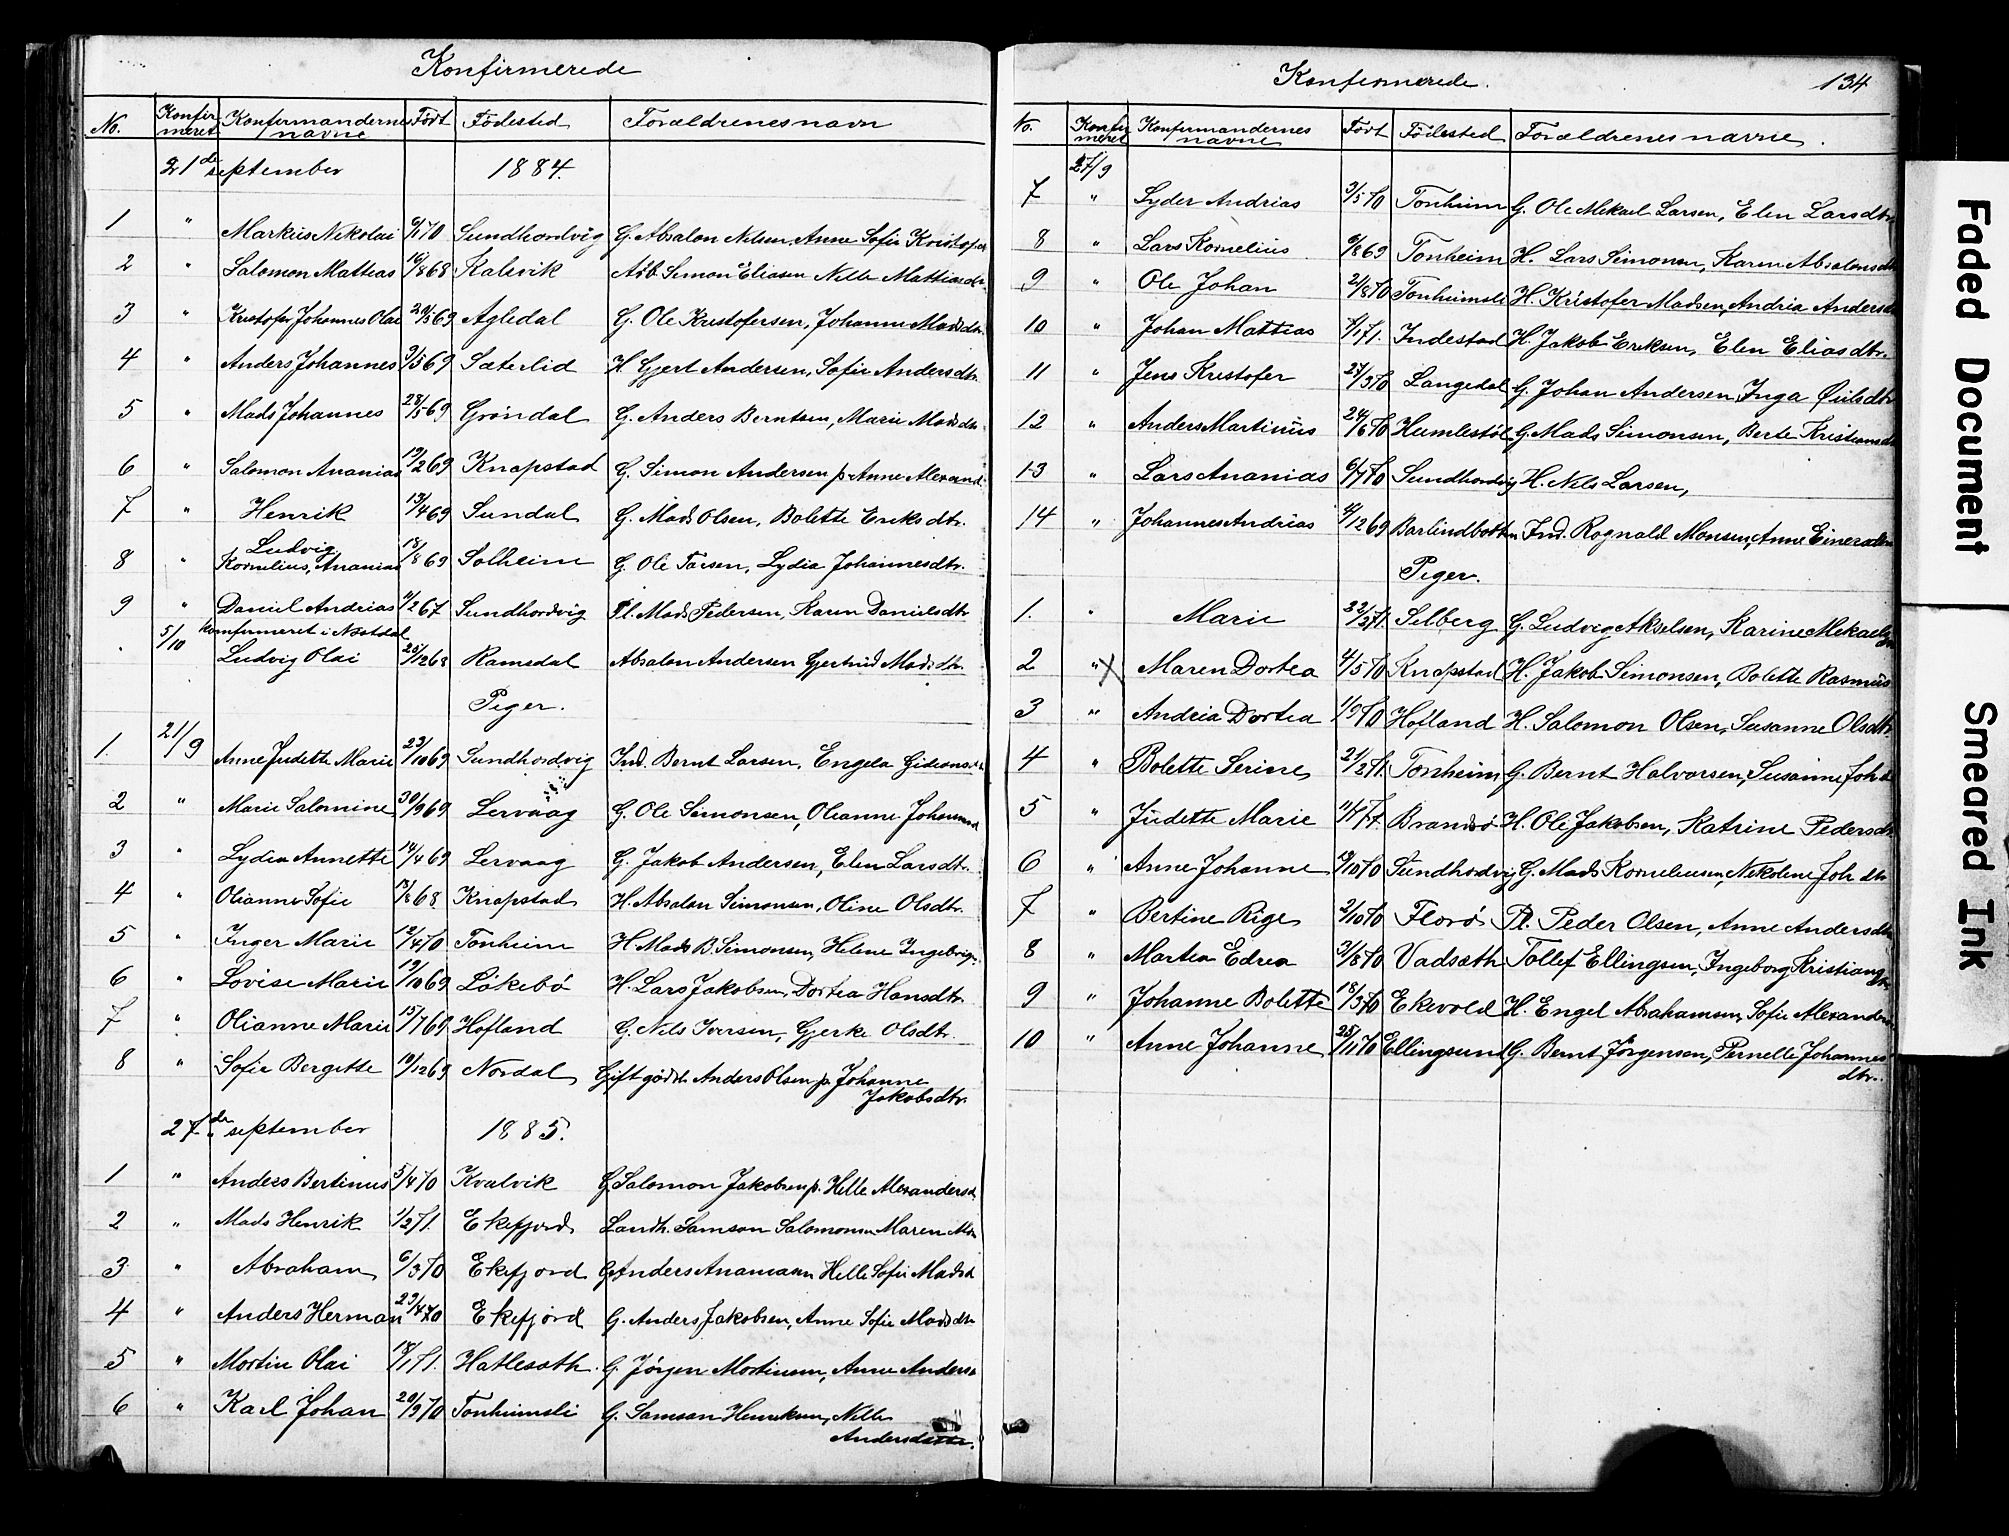 Konfirmerede
No. Konfirmeret Konfirmandernes navne Født Fødested Forældrenes navn
21de september 1884.
1 " Markus Nikolai 6/1 70 Sundhordvig G. Absalon Nilsen Anne Sofie Kristofer
2 " Salomon Mattias 16/8 68 Kalsvik Arb. Simon Eliasen Nille Mattiasdr.
3 " Kristofer Johannes Olai 20/5 69 Agledal G. Ole Kristofersen, Johanne Madsdtr.
4 " Anders Johannes 9/5 69 Sæterlid H. Gjert Andersen, Sofie Andersdtr.
5 " Mads Johannes 28/5 69 Grøndal G. Anders Berntsen, Marie Madsdtr.
6 " Salomon Ananias 19/2 69 Knapstad G. Simon Andersen p. Anne Alexand.
7 " Henrik 13/4 69 Sundal G. Mads Olsen, Bolette Eriksdtr.
8 " Ludvig Kornelius, Ananias 18/8 69 Solheim G. Ole Tarsen, Lydia Johannesdtr.
9 " Daniel Andrias 4/2 67 Sundhordvig Pl. Mads Pedersen, Karen Danielsdtr
5/10 konfirmeret i Nøstdal
Ludvig Olai 25/12 68 Ramsdal Absalon Andersen Gjertrud Madsdtr.
Piger.
1. 21/9 Anne Judette Marie 23/10 69 Sundhordvig Ind. Bernt Larsen, Engela Gideonsd.
2 " Marie Salomine 30/9 69 Lervaag G. Ole Simonsen, Olianne Johannesd
3 " Lydia Annette 14/4 69 Lervaag G. Jakob Andersen, Elen Larsdtr.
4 " Olianne Sofie 17/8 68. Knapstad H. Absalon Simonsen, Oline Olsdtr.
5 " Inger Marie 12/4 70 Tonheim H. Mads B. Simonsen, Helene Ingebrigt.
6 " Lovise Marie 19/10 69 Løkebø H. Lars Jakobsen, Dortea Hansdtr.
7 " Olianne Marie 15/7 69 Hofland G. Nils Iversen, Gjerke Olsdtr.
8 " Sofie Bergitte 19/12 69 Nordal Gift gaards Anders Olsen p. Johanne
Jakobsdtr.
27de september 1885.
1 " Anders Bertinus 5/4 70 Kvalvik G. Salomon Jakobsen p. Helle Alexandersd.
2 " Mads Henrik 1/2 71. Ekefjord Landh. Samson Salomonsen Maren Mds
3 " Abraham 6/3 70 Ekefjord G. Anders Anamaan Helle Sofie Madsd
4 " Anders Herman 29/4 70 Ekefjord G. Anders Jakobsen, Anne Sofie Madsdtr
5 " Martin Olai 18/1 71. Hatlesæth. G. Jørgen Martinsen, Anne Anders
6 " Karl Johan 20/9 70 Tonheimsli G. Samson Henriksen, Nille
Andersdatter.
Konfirmerede. 134
No. Konfirmeret Konfirmandernes navne Født Fødested Forældrenes navne.
27/9
7 " Lyder Andrias 3/5 70 Tonheim G. Ole Mekael Larsen, Elen Larsdtr
8 " Lars Kornelius 9/8 69 Tonheim H. Lars Simonsen, Karen Absalonsdtr
9 " Ole Johan 2/8 70 Tonheimsli H. Kristofer Madsen, Andria Andersd
10 " Johan Mattias 4/1 71. Indestad H. Jakob Eriksen, Elen Eliasdtr.
11 " Jens Kristofer 27/3 70 Langedal G. Johan Andersen, Inga Øilsdtr
12 " Anders Martinus 24/6 70 Humlestøl G. Mads Simonsen, Berte Kristiansd
13 " Lars Ananias 6/7 70 Sundhordvig H. Nils Larsen,
14 " Johannes Andrias 4/12 69 Barlindbotten Ind. Rognald Monsen, Anne Einersdtr
Piger.
1. " Marie 22/3 71. Selberg G. Ludvig Akselsen, Karine Mekaelsdtr
2 " X Maren Dortea 4/5 70 Knapstad H. Jakob Simonsen, Bolette Rasmus
3 " Andria Dortea 1/9 70 Hofland H. Salomon Olsen, Susanne Olsdtr
4 " Bolette Serine 21/2 71. Tonheim G. Bernt Halvorsen, Susanne Joh d
5 " Judette Marie 11/4 71. Brandsø H. Ole Jakobsen, Katrine Pedersdtr
6 " Anne Johanne 19/10 70 Sundhordvig G. Mads Korneliusen, Nekoline Joh dtr
7 " Bertine Rige 2/10 70 Florø Pl. Peder Olsen, Anne Andersdtr
8 " Martea Edrea 3/8 70 Vadsæth Tollef Ellingsen, Ingeborg Kristiansdtr
9 " Johanne Bolette 18/3 70 Ekevold H. Engel Abrahamsen, Sofie Alexanders
10 " Anne Johanne 25/11 70 Ellingsund G. Bernt Jørgensen, Pernelle Johannes
dtr.
Faded Document
Smeared Ink